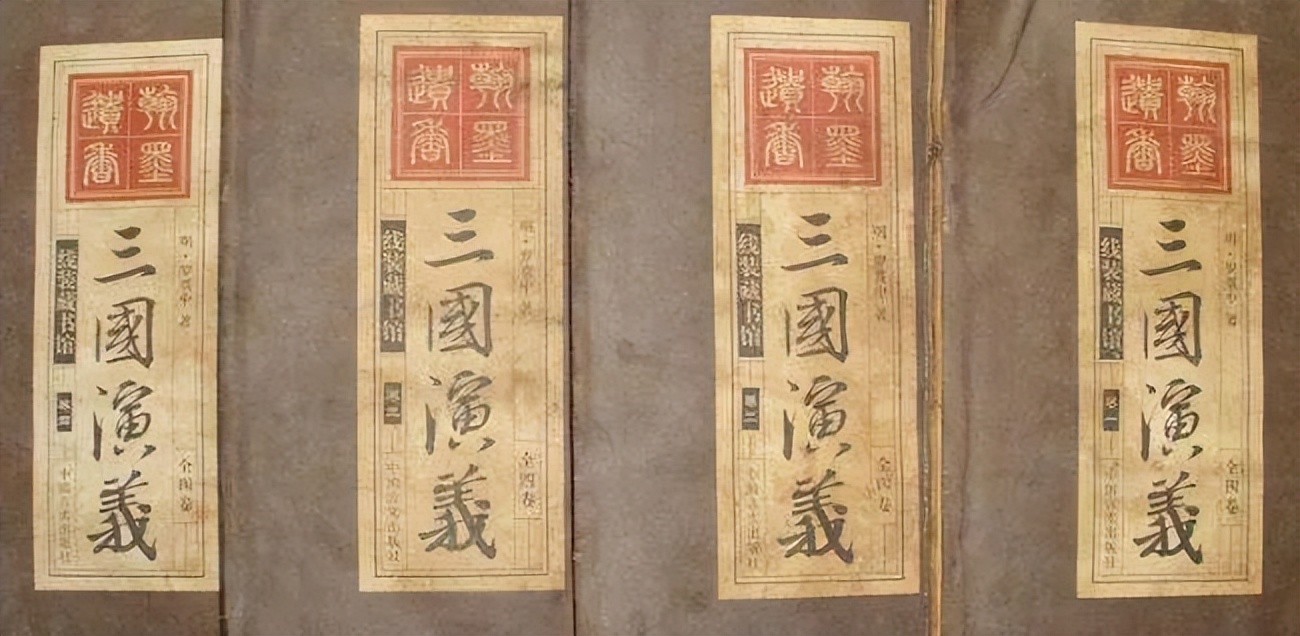 翰墨
遺香
明·罗贯中 著
全四卷
三國演義
线装藏书馆
翰墨
遺香
明·罗贯中 著
全四卷
三國演義
线装藏书馆
翰墨
遺香
明·罗贯中 著
全四卷
三國演義
线装藏书馆
卷二
翰墨
遺香
明·罗贯中 著
全四卷
三國演義
线装藏书馆
卷一